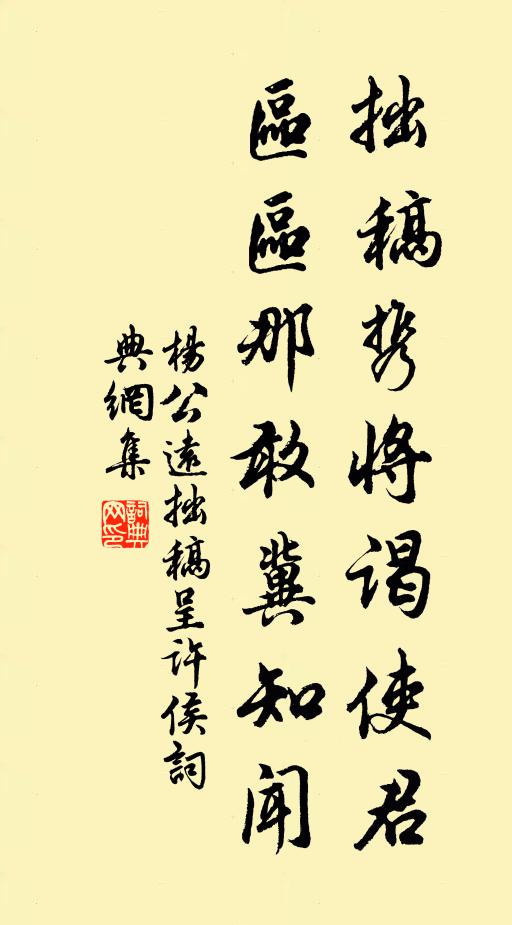 拙稿携将谒使君
區區那敢冀知闻
楊公遠拙稿呈许侯詞
典網集
詞典网印